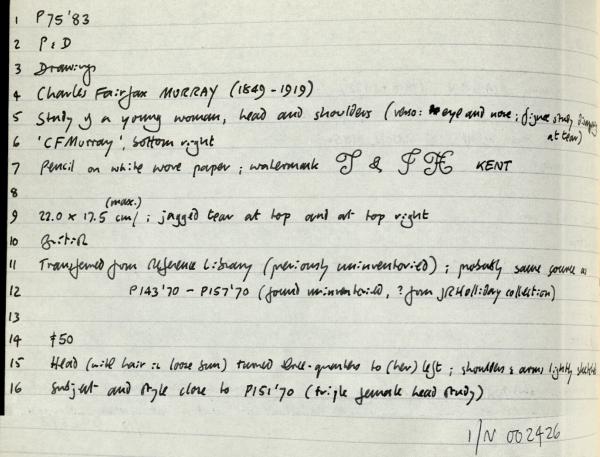 1 P75'83
2 P & D
3 Drawings
4 Charles Fairfax MURRAY (1849-1919)
5 Study of a young woman, head and shoulders (verso: eye and nose; figure study
at tear)
6 'CFMurray', bottom right
7 Pencil on white wove paper; watermark J & TH KENT
8
(max.)
9 22.0 x 17.5 cm/; jagged tear at top and at top right
10 British
11 Transferred from Reference Library (previously uninventoried); probably same source as
12 P143'70 - P157'70 (found uninventoried, ? from JRHolliday collection)
13
14 £50
15 Head (with hair in loose bun) turned three-quarters to (her) left; shoulders & arms lightly sketched
16 Subject and style close to P151'70 (triple female head study)
I/N 002426